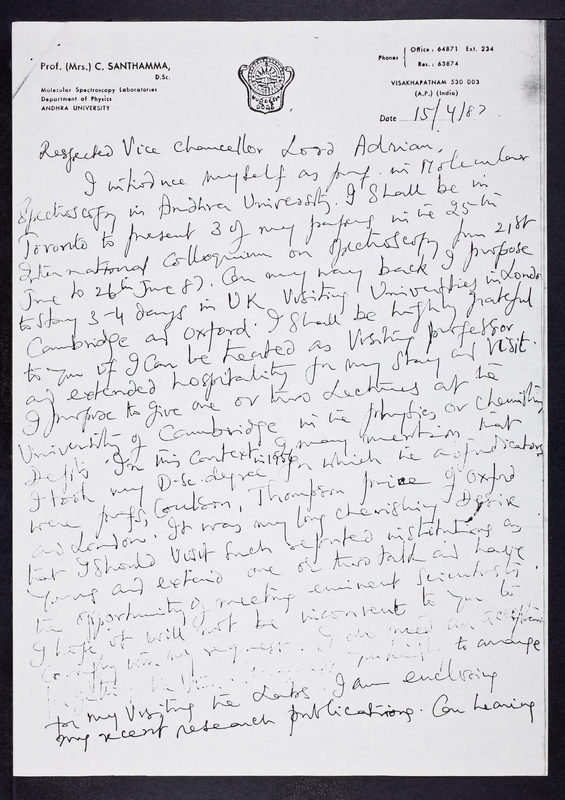 Prof. (Mrs.) C. SANTHAMMA,
D.Sc.
Molecular Spectroscopy Laboratories
Department of Physics
ANDHRA UNIVERSITY
Phones
Office: 64871 Ext. 234
Res.: 63874
VISAKHAPATNAM 530 003
(A.P.) (India)
Date 15/4/87
Respected Vice Chancellor Lord Adrian,
I introduce myself as prof. in Molecular
Spectroscopy in Andhra University. I shall be in
Toronto to present 3 of my papers in the 25th
International Colloquium on Spectroscopy from 21st
June to 26th June 87. On my way back I propose
to stay 3-4 days in UK visiting Universities in London
Cambridge and Oxford. I shall be highly grateful
to you if I can be treated as visiting professor
and extended hospitality for my stay and visit.
I propose to give one or two Lectures at the
University of Cambridge in the physics or chemistry
Depts. In this context I may mention that
I took my D.Sc. degree in 1956 for which the adjudicators
were profs, Coulson, Thompson, price of Oxford
and London. It was my long cherishing desire
that I should visit such reputed institutions as
yours and extend one or two talk and have
the opportunity of meeting eminent scientists.
I hope it will not be inconvent to you to
comply with my request. I do need an
to arrange
for my visiting the Labs. I am enclosing
my recent research publications. On hearing